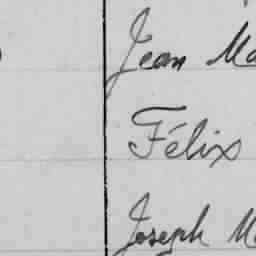 Jean Ma
Félix
Joseph M